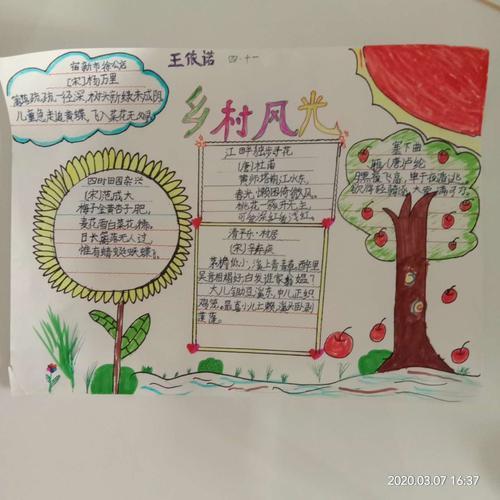 王依诺 四·十一
乡村风光
宿新市徐公店
[宋]杨万里
篱落疏疏一径深,树头新绿未成阴
儿童急走追黄蝶,飞入菜花无处寻
四时田园杂兴
(宋)范成大
梅子金黄杏子肥,
麦花雪白菜花稀。
日长篱落无人过,
惟有蜻蜓蛱蝶。
江畔独步寻花
(唐)杜甫
黄师塔前江水东,
春光懒困倚微风。
桃花一簇开无主,
可爱深红爱浅红。
清平乐·村居
(宋)辛弃疾
茅檐低小,溪上青青草。醉里
吴音相媚好,白发谁家翁媪?
大儿锄豆溪东,中儿正织
鸡笼。最喜小儿亡赖,溪头卧剥
莲蓬。
塞下曲
[唐]卢纶
月黑雁飞高,单于夜遁逃
欲将轻骑逐,大雪满弓刀。
2020.03.07 16:37